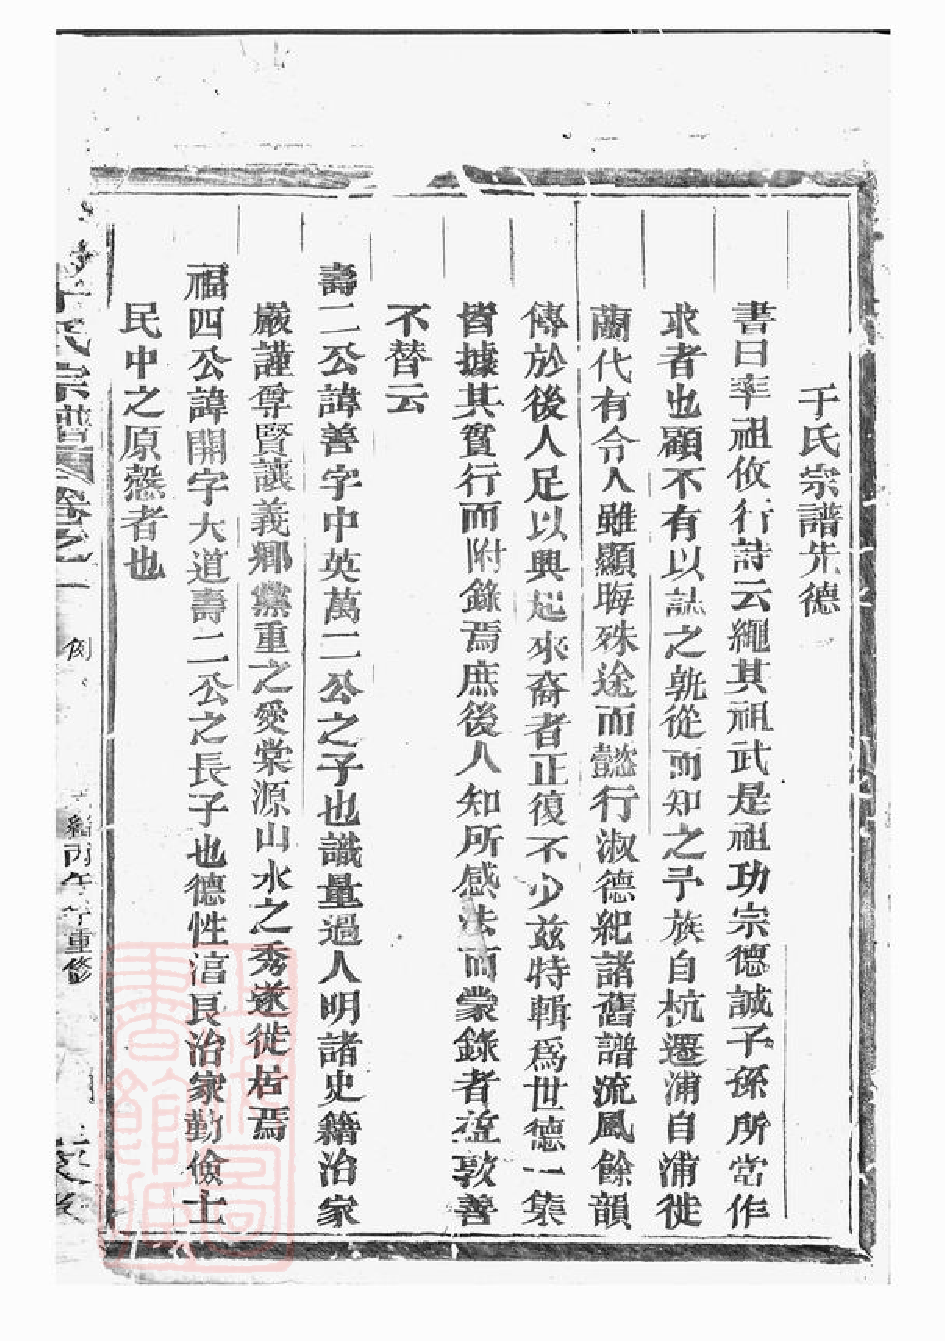 于氏宗譜先德
書曰率祖攸行詩云繩其祖武是祖功宗德誠子孫所當作
求者也顧不有以誌之孰從而知之予族自杭遷浦自浦徙
蘭代有令人雖顯晦殊途而懿行淑德紀諸舊譜流風餘韻
傳於後人足以興起來裔者正復不少茲特輯爲世德一集
皆據其實行而附錄焉庶後人知所感法而蒙錄者益敦善
不替云
壽二公諱善字中英萬二公之子也識量過人明諸史籍治家
嚴謹尊賢讓義鄉黨重之愛棠源山水之秀遂徙居焉
福四公諱開字大道壽二公之長子也德性湻良治家勤儉士
民中之原慤者也
于氏宗譜 卷之一
丙午年重修